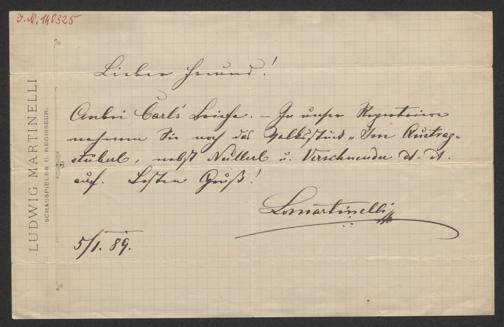 J.N. 148325
LUDWIG MARTINELLI
SCHAUSPIELER U. REGISSEUR.
Lieber Freund!
Anbei Carl's Briefe. – In unser Repertoire
nehmen Sie noch das Volksstück „Im Austrag-
stüberl, nebst Nullerl u. Verschwender
auf. Besten Gruß!
LMartinelli
5/1. 89.